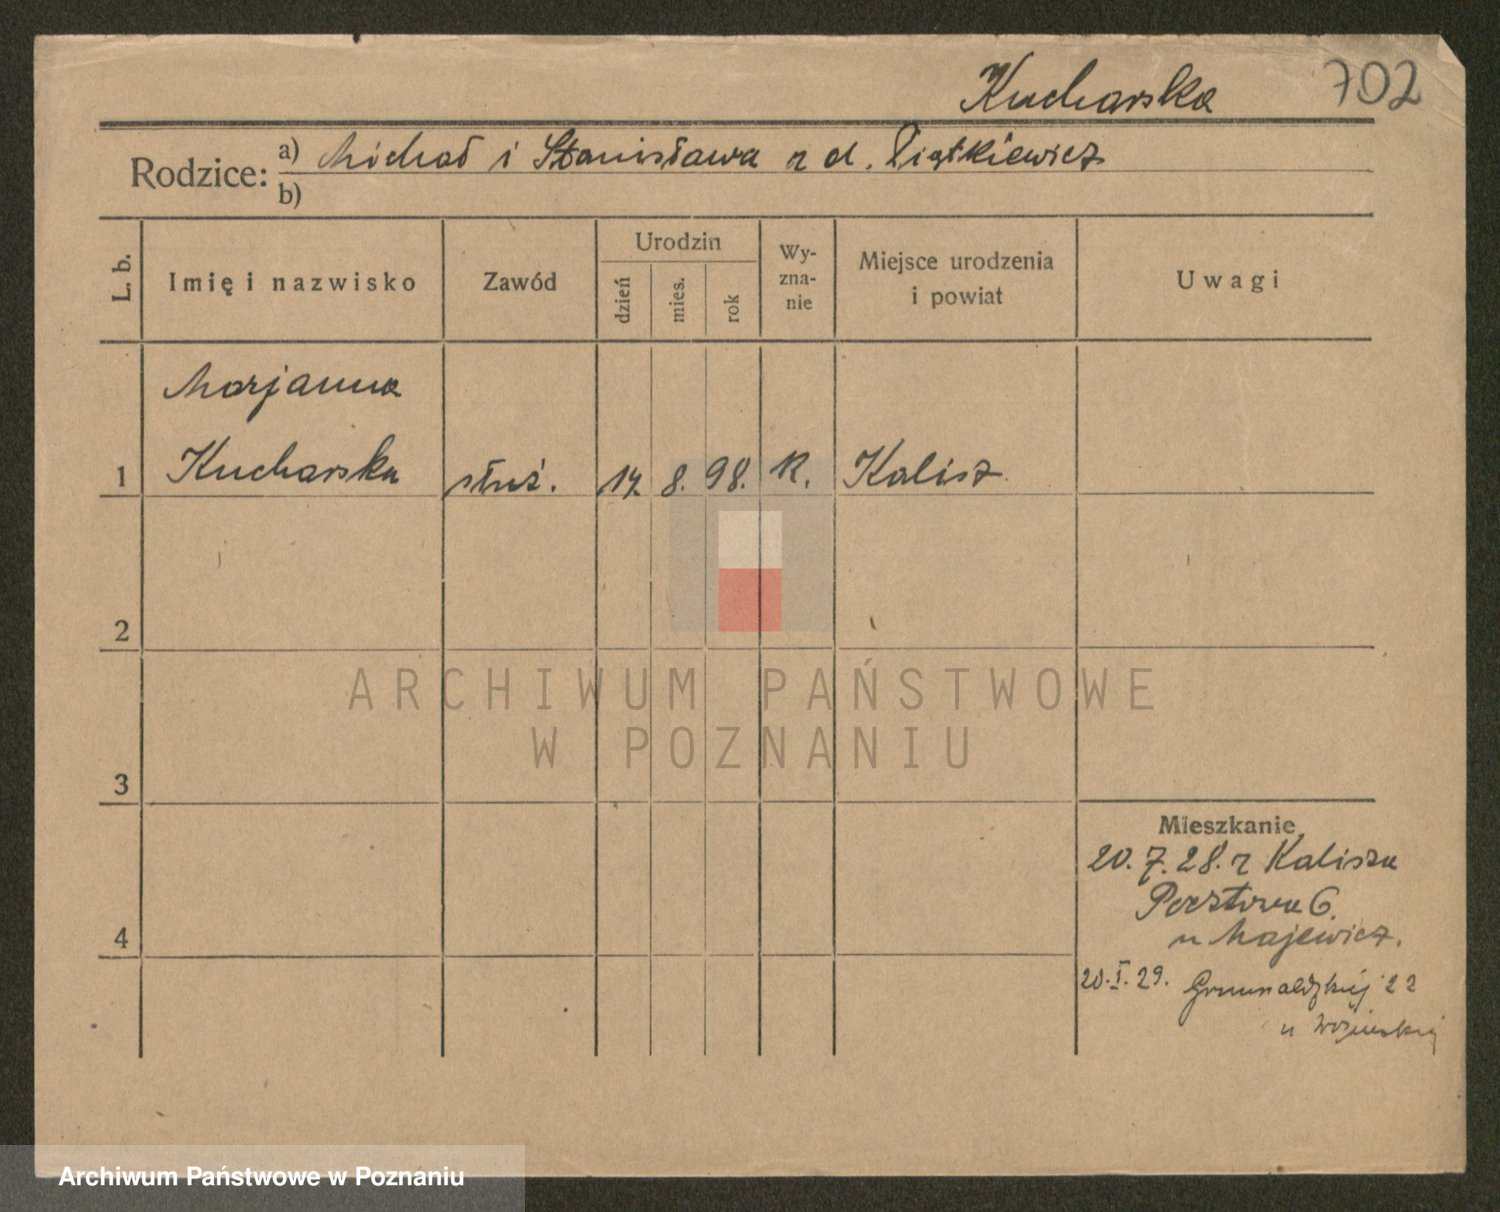 Kucharska 702
Rodzice: a) Michał i Stanisława z d. Piątkiewicz
b)
L. b. Imię i nazwisko Zawód Urodzin dzień mies. rok Wy-zna-nie Miejsce urodzenia i powiat Uwagi
Marjanna
1 Kucharska służ. 14. 8. 98. R. Kalisz
2
ARCHIWUM PAŃSTWOWE
W POZNANIU
3
Mieszkanie
20.7.28. z Kalisza
Pocztowa 6.
4 u Majewicz.
20.I.29. Grunwaldzkiej 22
u
Archiwum Państwowe w Poznaniu